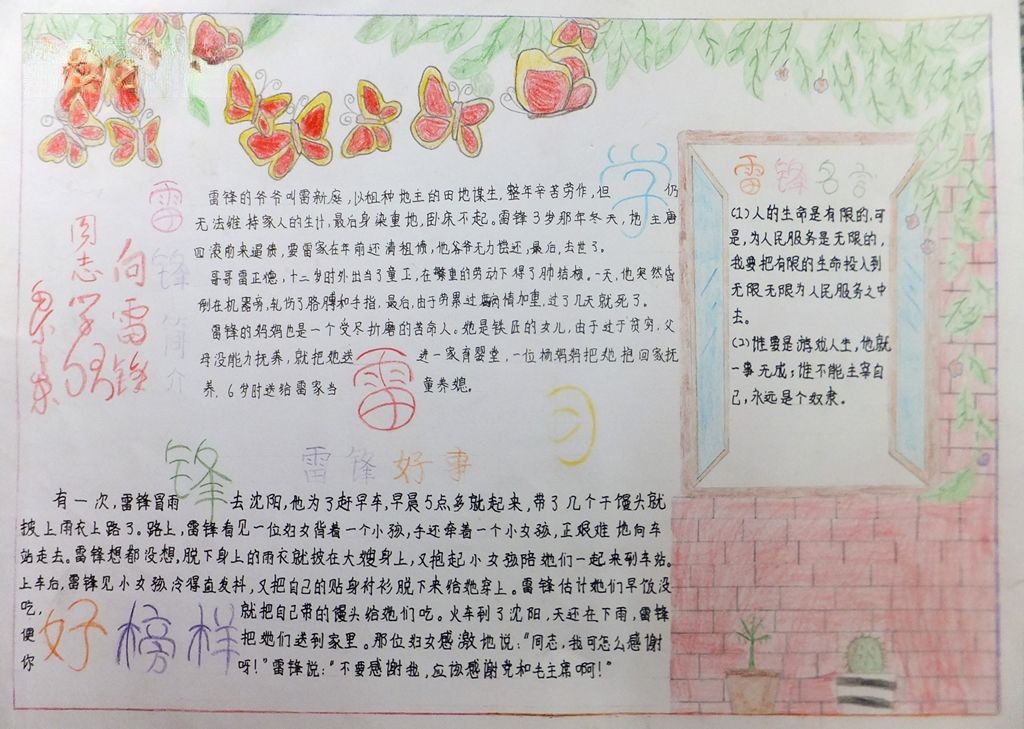 向雷锋
同志学习
雷锋简介
雷锋的爷爷叫雷新庭,以租种地主的田地谋生,整年辛苦劳作,但仍
无法维持家人的生计,最后身染重地,卧床不起。雷锋3岁那年冬天,地主唐
四滚前来逼债,要雷家在年前还清租债,他爷爷无力偿还,最后,去世了。
哥哥雷正德,十二岁时外出当了童工,在繁重的劳动下得了肺结核。一天,他突然昏
倒在机器旁,轧伤了胳膊和手指。最后,由于劳累过度病情加重,过了几天就死了。
雷锋的妈妈也是一个受尽折磨的苦命人。她是铁匠的女儿,由于过于贫穷,父
母没能力抚养,就把她送进一家育婴堂,一位杨妈妈把她抱回家抚
养。6岁时送给雷家当童养媳。
学习雷锋好榜样
雷锋名言
(1)人的生命是有限的,可
是,为人民服务是无限的,
我要把有限的生命投入到
无限无限为人民服务之中
去。
(2)谁要是游戏人生,他就
一事无成;谁不能主宰自
己,永远是个奴隶。
雷锋好事
有一次,雷锋冒雨去沈阳,他为了赶早车,早晨5点多就起来,带了几个干馒头就
披上雨衣上路了。路上,雷锋看见一位妇女背着一个小孩,手还牵着一个小女孩,正艰难地向车
站走去。雷锋想都没想,脱下身上的雨衣就披在大嫂身上,又抱起小女孩陪她们一起来到车站。
上车后,雷锋见小女孩冷得直发抖,又把自己的贴身衬衫脱下来给她穿上。雷锋估计她们早饭没
吃,就把自己带的馒头给她们吃。火车到了沈阳,天还在下雨,雷锋
便把她们送到家里。那位妇女感激地说:“同志,我可怎么感谢
你呀!”雷锋说:“不要感谢我,应该感谢党和毛主席啊!”